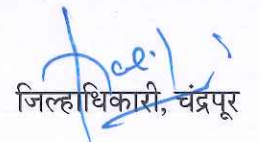 जिल्हाधिकारी, चंद्रपूर